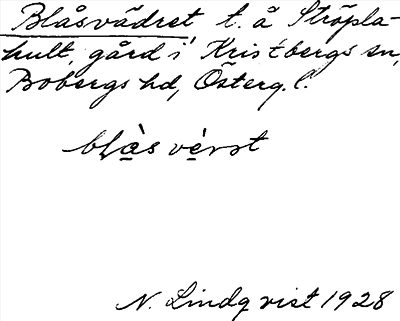 Blåsvädret, t. å Ströpla-
hult, gård i Kristbergs sn,
Bobergs hd, Österg. l.
blàsvérət
N. Lindqvist 1928